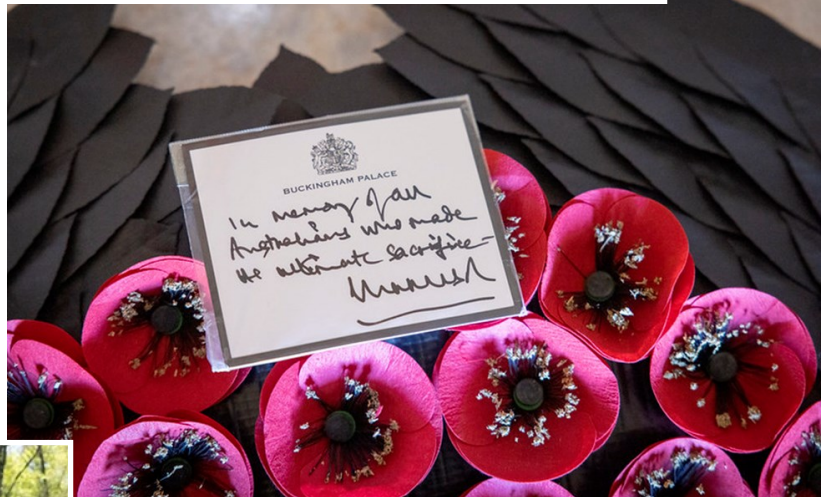 BUCKINGHAM PALACE
In memory of all
Australians who made
the ultimate sacrifice –